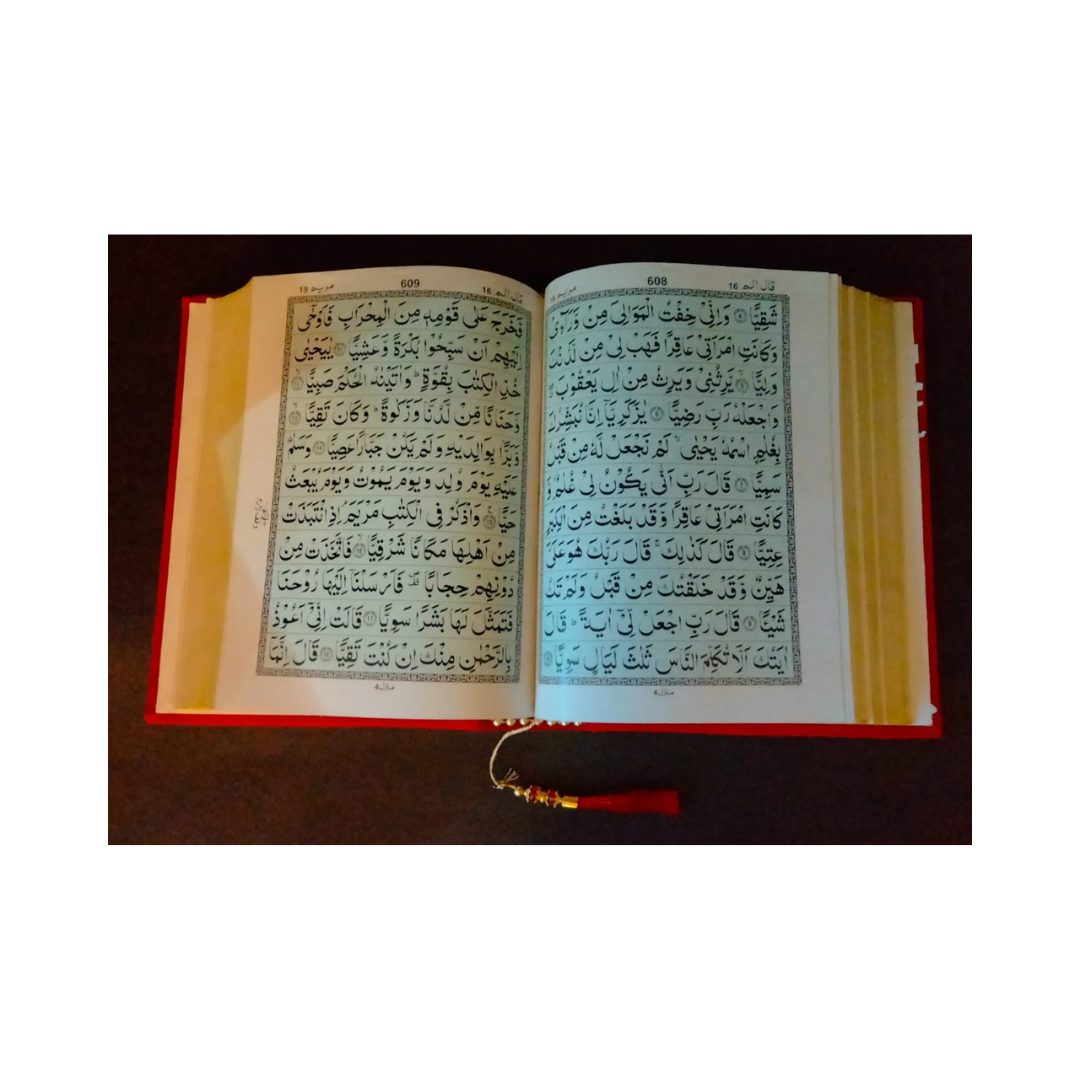 قال الم 16
608
مريم 19
شَقِيًّا ۝٤ وَاِنِّىْ خِفْتُ الْمَوَالِىَ مِنْ وَّرَآءِىْ
وَكَانَتِ امْرَاَتِىْ عَاقِرًا فَهَبْ لِىْ مِنْ لَّدُنْكَ
وَلِيًّا ۝٥ يَّرِثُنِىْ وَيَرِثُ مِنْ اٰلِ يَعْقُوْبَ ۖ
وَاجْعَلْهُ رَبِّ رَضِيًّا ۝٦ يٰزَكَرِيَّآ اِنَّا نُبَشِّرُكَ
بِغُلٰمِ اسْمُهٗ يَحْيٰى ۙ لَمْ نَجْعَلْ لَّهٗ مِنْ قَبْلُ
سَمِيًّا ۝٧ قَالَ رَبِّ اَنّٰى يَكُوْنُ لِىْ غُلٰمٌ وَّ
كَانَتِ امْرَاَتِىْ عَاقِرًا وَّقَدْ بَلَغْتُ مِنَ الْكِبَرِ
عِتِيًّا ۝٨ قَالَ كَذٰلِكَ ۚ قَالَ رَبُّكَ هُوَ عَلَىَّ
هَيِّنٌ وَّقَدْ خَلَقْتُكَ مِنْ قَبْلُ وَلَمْ تَكُ
شَيْـًٔا ۝٩ قَالَ رَبِّ اجْعَلْ لِّىْٓ اٰيَةً ؕ قَالَ
اٰيَتُكَ اَلَّا تُكَلِّمَ النَّاسَ ثَلٰثَ لَيَالٍ سَوِيًّا ۝١٠
منزل 4
قال الم 16
609
مريم 19
فَخَرَجَ عَلٰى قَوْمِهٖ مِنَ الْمِحْرَابِ فَاَوْحٰٓى
اِلَيْهِمْ اَنْ سَبِّحُوْا بُكْرَةً وَّعَشِيًّا ۝١١ يٰيَحْيٰى
خُذِ الْكِتٰبَ بِقُوَّةٍ ؕ وَاٰتَيْنٰهُ الْحُكْمَ صَبِيًّا ۝١٢
وَّحَنَانًا مِّنْ لَّدُنَّا وَزَكٰوةً ؕ وَكَانَ تَقِيًّا ۝١٣
وَّبَرًّۢا بِوَالِدَيْهِ وَلَمْ يَكُنْ جَبَّارًا عَصِيًّا ۝١٤ وَسَلٰمٌ
عَلَيْهِ يَوْمَ وُلِدَ وَيَوْمَ يَمُوْتُ وَيَوْمَ يُبْعَثُ
حَيًّا ۝١٥ وَاذْكُرْ فِى الْكِتٰبِ مَرْيَمَ ۘ اِذِ انْتَبَذَتْ
مِنْ اَهْلِهَا مَكَانًا شَرْقِيًّا ۝١٦ فَاتَّخَذَتْ مِنْ
دُوْنِهِمْ حِجَابًا ۪ فَاَرْسَلْنَآ اِلَيْهَا رُوْحَنَا
فَتَمَثَّلَ لَهَا بَشَرًا سَوِيًّا ۝١٧ قَالَتْ اِنِّىْٓ اَعُوْذُ
بِالرَّحْمٰنِ مِنْكَ اِنْ كُنْتَ تَقِيًّا ۝١٨ قَالَ اِنَّمَآ
منزل 4